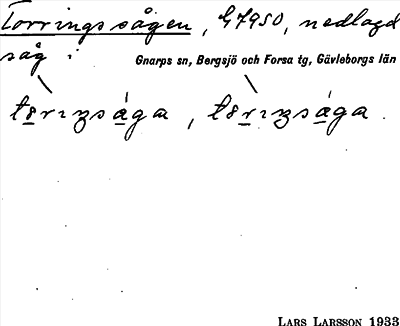 Torringssågen, 47950, nedlagd
såg i
Gnarps sn, Bergsjö och Forsa tg, Gävleborgs län
LARS LARSSON 1933